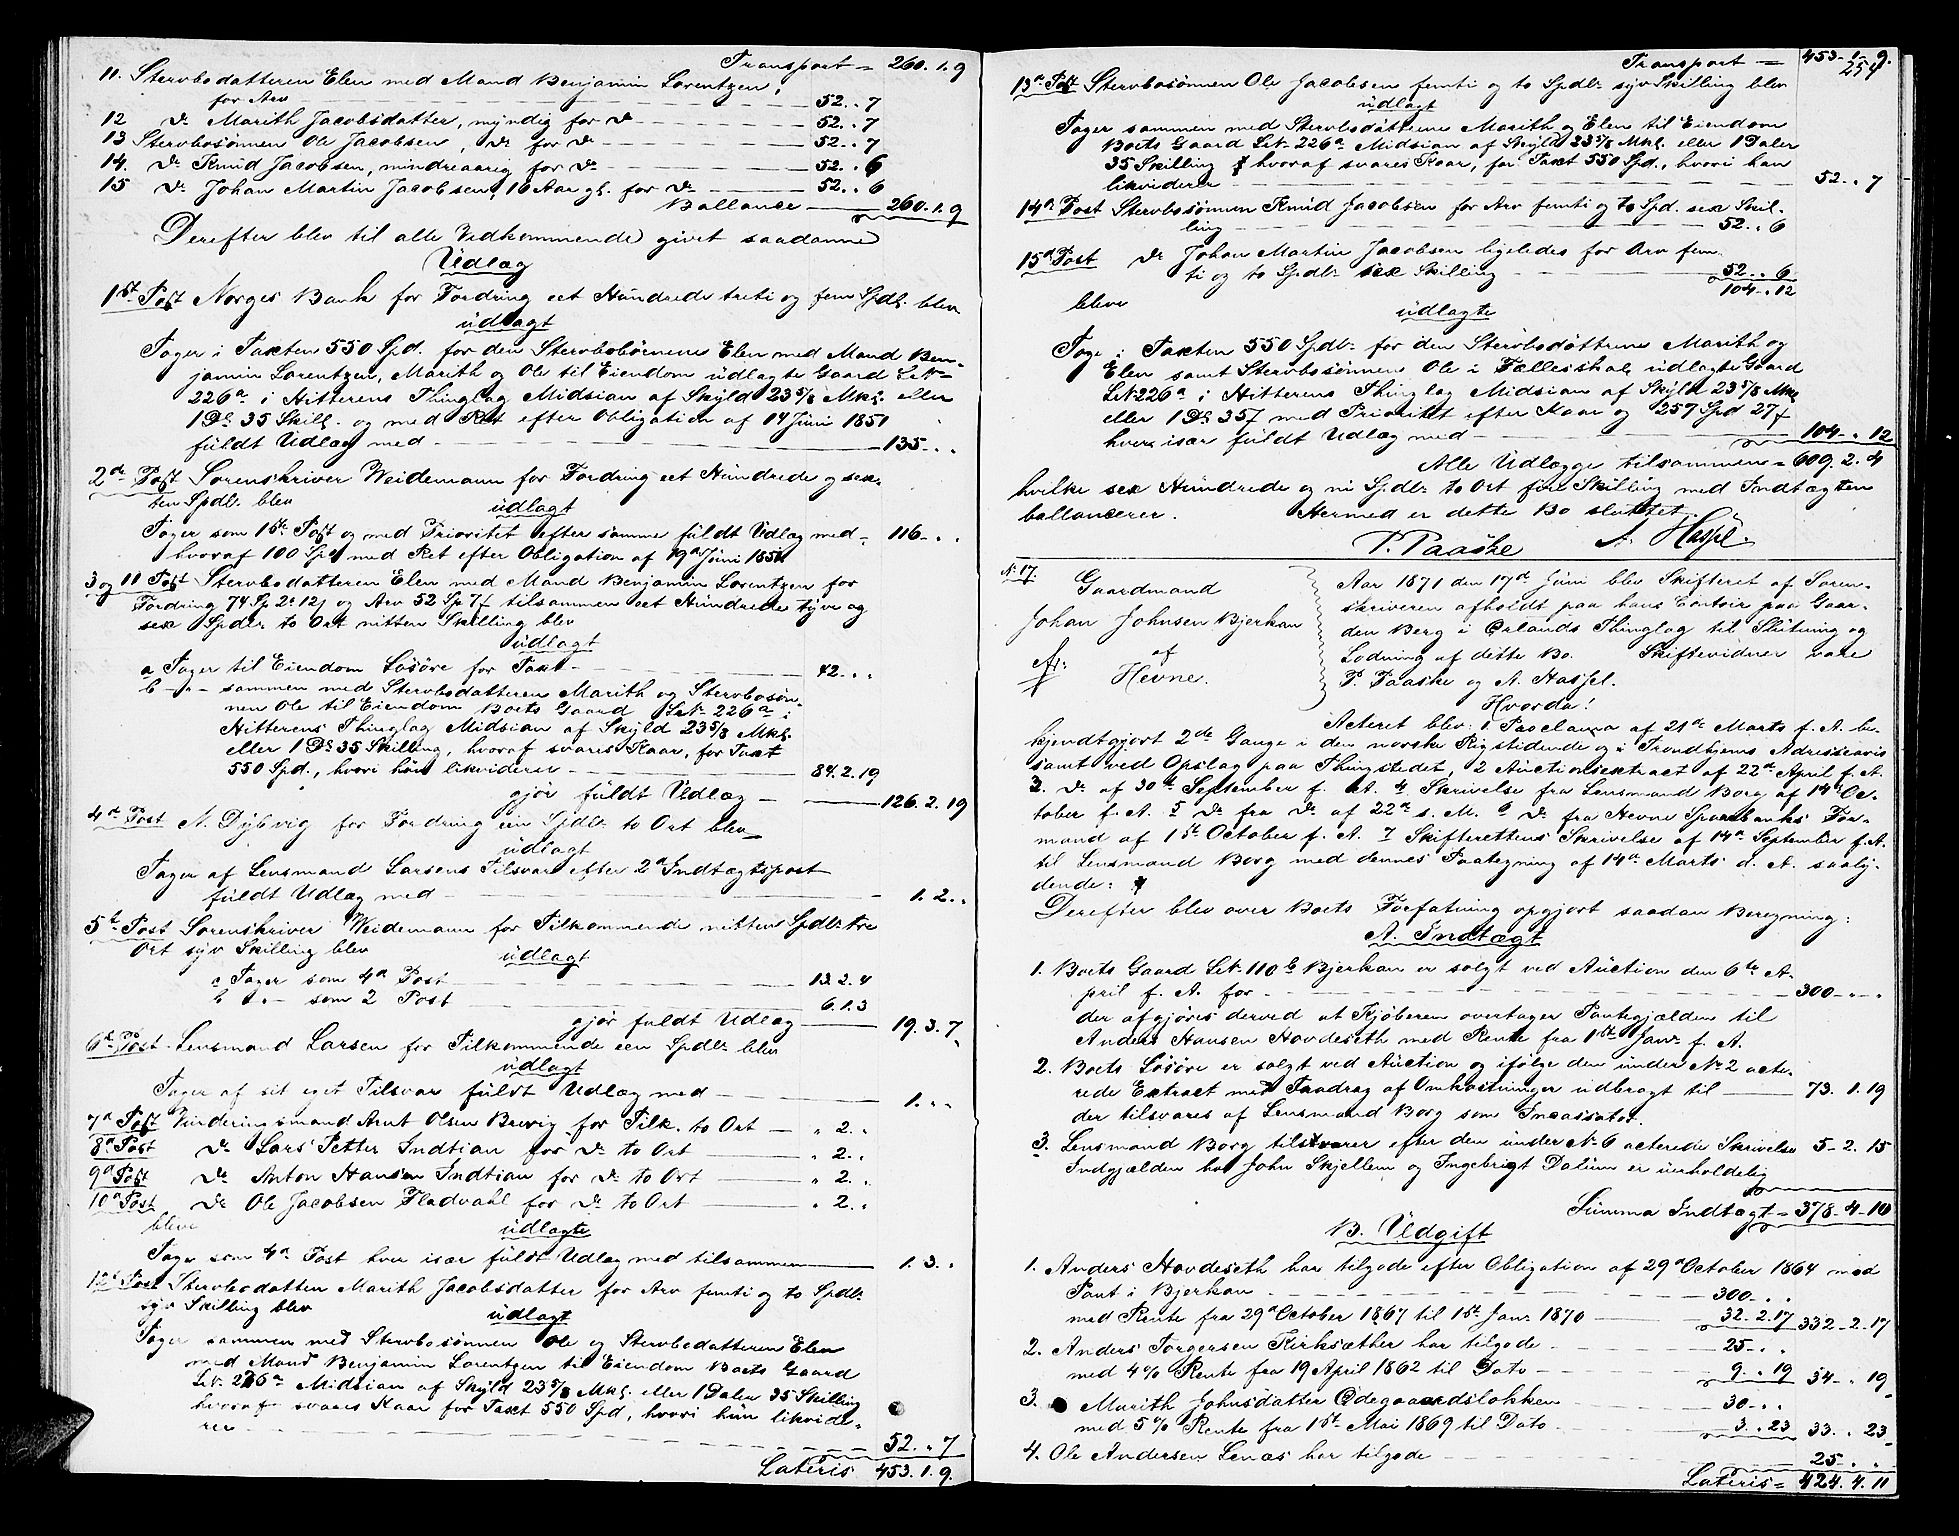 Transport = 260.1.9
11. Stervbodatteren Elen med Mand Benjamin Lorentzen,
for Arv 52. „ 7
12 do Marith Jacobsdatter, myndig for do 52. „ 7
13 Stervbosønnen Ole Jacobsen, do for do 52. „ 7
14. do Knud Jacobsen, mindreaarig for do 52. „ 6
15 do Johan Martin Jacobsen, 16 Aar gl. for do 52. „ 6
Ballance 260.1.9
Derefter blev til alle Vedkommende givet saadanne
Udlæg
1ste Post Norges Bank for Fordring eet Hundrede treti og fem Spdl. blev
udlagt
Tager i Taxten 550 Spd. for den Stervbobørnene Elen med Mand Ben-
jamin Lorentzen, Marith og Ole til Eiendom udlagte Gaard L.No
226a i Hitterens Thinglag Midsian af Skyld 23 5/8 Mkl. eller
1 Dl. 35 Skill. og med Ret efter Obligation af 14 Juni 1851
fuldt Udlæg med 135. „ „
2den Post Sorenskriver Weidemann for Fordring eet Hundrede og sex-
ten Spdlr blev udlagt
Tager som 1ste Post og med Prioritet efter samme fuldt Udlæg med 116. „ „
hvoraf 100 Spd med Ret efter Obligation af 19de Juni 1851
3 og 11 Post Stervbodatteren Elen med Mand Benjamin Lorentzen for
Fordring 74 Sp 2 12 og Arv 52 Sp 7 tilsammen eet Hundrede tyve og
sex Spdlr to Ort nitten Skilling blev
udlagt
a Tager til Eiendom Løsøre for Taxt 42. „ „
b -„- sammen med Stervbodatteren Marith og Stervbosøn-
nen Ole til Eiendom Boets Gaard L.No 226a i
Hitterens Thinglag Midsian af Skyld 23 5/8 Mkl.
eller 1 Dl 35 Skilling, hvoraf svares Kaar, for Taxt
550 Spd., hvori hun likviderer 84.2.19
gjør fuldt Udlæg 126.2.19
4de Post N. Dybvig for Fordring een Spdlr to Ort blev
udlagt
Tager af Lensmand Larsens Tilsvar efter 2den Indtægtspost
fuldt Udlæg med 1. 2. „
5te Post Sorenskriver Weidemann for Tilkommende nitten Spdlr tre
Ort syv Skilling blev udlagt
a Tager som 4de Post 13.2.4
b -„- som 2 Post 6.1.3
gjør fuldt Udlæg 19. 3. 7
6te Post Lensmand Larsen for Tilkommende een Spdlr blev
udlagt
Tager af sit eget Tilsvar fuldt Udlæg med 1. „ „
7de Post Vurderingsmand Arnt Olsen Brevig for Tilk. to Ort „ 2. „
8de Post do Lars Petter Indtian for do to Ort „ 2. „
9de Post do Anton Hansen Indtian for do to Ort „ 2. „
10de Post do Ole Jacobsen Fladvahl for do to Ort „ 2. „
bleve udlagte
Tager som 4de Post hver især fuldt Udlæg med tilsammen 1. 3. „
12te Post Stervbodatten Marith Jacobsdatter for Arv femti og to Spdlr
syv Skilling blev udlagt
Tager sammen med Stervbosønnen Ole og Stervbodatteren Elen
med Mand Benjamin Lorentzen til Eiendom Boets Gaard
L.No 226a Midsian af Skyld 23 5/8 Mkl. eller 1 Daler 35 Skilling
hvoraf svares Kaar for Taxt 550 Spd, hvori hun likvide-
rer 52. „ 7
Lateris 453.1.9.
254
Transport = 453-1-9.
13de Post Stervbosønnen Ole Jacobsen femti og to Spdlr syv Skilling blev
udlagt
Tager sammen med Stervbodøttrene Marith og Elen til Eiendom
Boets Gaard L.No 226a Midsian af Skyld 23 5/8 Mkl. eller 1 Daler
35 Skilling hvoraf svares Kaar, for Taxt 550 Spd., hvori han
likviderer 52. „ 7
14de Post Stervbosønnen Knud Jacobsen for Arv femti og to Spd. sex Skil-
ling 52. „ 6
15de Post do Johan Martin Jacobsen ligeledes for Arv fem-
ti og to Spdlr sex Skilling 52. „ 6
104. „ 12
bleve udlagte
Tage i Taxten 550 Spdlr for den Stervbodøttrene Marith og
Elen samt Stervbosønnen Ole i Fællesskab udlagte Gaard
L.No 226a i Hitterens Thinglag Midsian af Skyld 23 5/8 Mkl
eller 1 Dl 35 med Prioritet efter Kaar og 257 Spd 27
hver især fuldt Udlæg med 104. „ 12
Alle Udlægge tilsammen = 609.2.4
hvilke sex Hundrede og ni Spdlr to Ort fire Skilling med Indtægten
ballancerer. Hermed er dette Bo sluttet.
P. Paaske A. Hassel.
No 17.
Gaardmand
Johan Johnsen Bjerkan
af
Hevne.
Aar 1871 den 17de Juni blev Skifteret af Soren-
skriveren afholdt paa hans Contoir paa Gaar-
den Berg i Ørlands Thinglag til Slutning og
Lodning af dette Bo. Skiftevidner vare
P. Paaske og A. Hassel.
Hvorda!
Acteret blev: 1 Proclama af 21de Marts f. A. be-
kjendtgjort 2de Gange i den norske Rigstidende og i Trondhjems Adresseavis
samt ved Opslag paa Thingstedet, 2 Auctionsextract af 22de April f. A.
3. do af 30te September f. A. 4 Skrivelse fra Lensmand Borg af 14de Oc-
tober f. A. 5 do fra do af 22de s. M. 6 do fra Hevne Sparebanks For-
mand af 1ste October f. A. 7 Skifterettens Skrivelse af 14de September f. A.
til Lensmand Borg med dennes Paategning af 14de Marts d. A. saaly-
dende:
Derefter blev over Boets Forfatning opgjort saadan Beregning:
A. Indtægt
1. Boets Gaard L.No 110b Bjerkan er solgt ved Auction den 6te A-
pril f. A. for 300 „ „
der afgjøres derved at Kjøberen overtager Pantegjælden til
Anders Hansen Hovdeseth med Rente fra 1ste Janr f. A.
2. Boets Løsøre er solgt ved Auction og ifølge den under No 2 acte-
rede Extract med Fradrag af Omkostninger udbragt til 73. 1. 19
der tilsvares af Lensmand Borg som Incassator.
3. Lensmand Borg tilsvarer efter den under No 6 acterede Skrivelse 5-2. 15
Indgjælden hos John Skjellem og Ingebrigt Dalum er uerholdelig
Summa Indtægt = 378-4-10
B. Udgift
1. Anders Hovdeseth har tilgode efter Obligation af 29de October 1864 med
Pant i Bjerkan 300 „ „
med Rente fra 29de October 1867 til 1ste Janr 1870 32.2.17 332-2-17
2. Anders Torgersen Kirksæther har tilgode 25 „ „
med 4% Rente fra 19 April 1862 til Dato 9. „ 19 34 „ 19
3. Marith Johnsdatter Ødegaardsløkken 30 „ „
med 5% Rente fra 1ste Mai 1869 til Dato 3. „ 23 33. „ 23
4. Ole Andersen Lenæs har tilgode 25 „ „
Lateris = 424.4.11